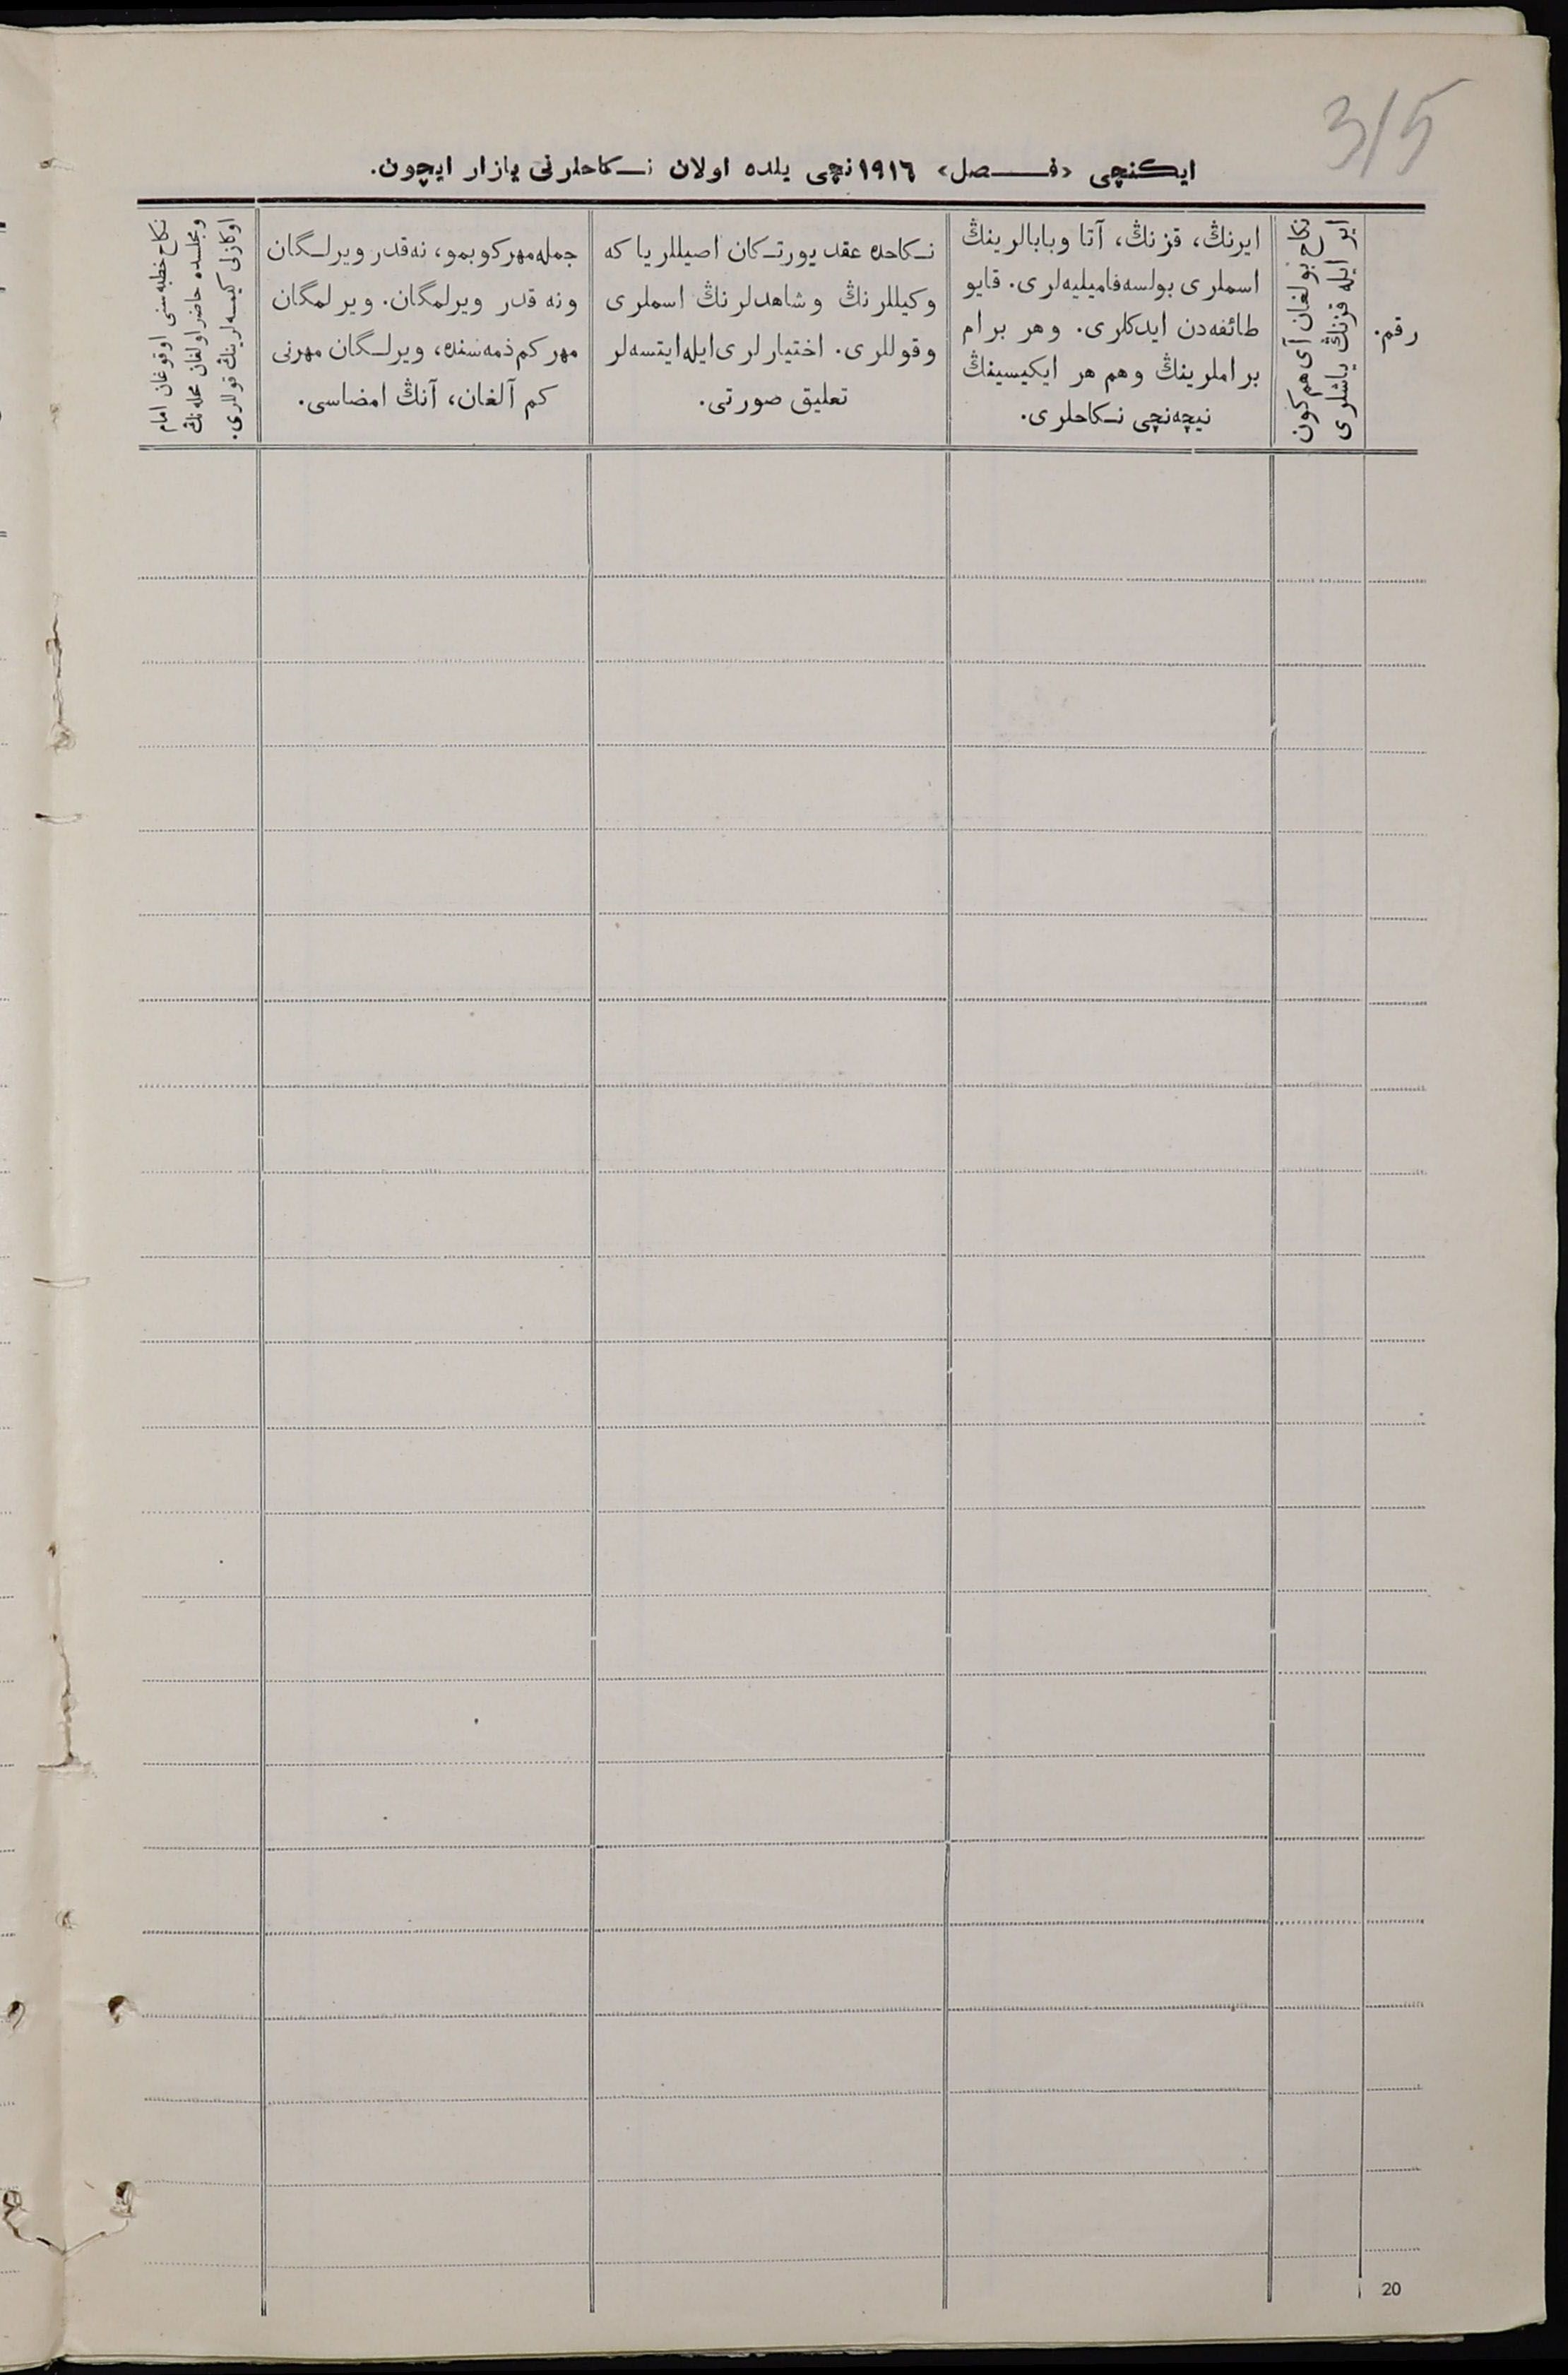 315
ایکنچی «فصل» ١٩١٦نچی یلده اولان نکاحلرنی یازار ایچون.
رقم.
نکاح بولغان آی هم کون
ایر ایله قزنڭ یاشلری
ایرنڭ، قزنڭ، آتا وبابالرینڭ
اسملری بولسه فامیلیه‌لری. قایو
طائفه‌دن ایدکلری. وهر برام
براملرینڭ وهم هر ایکیسینڭ
نیچه‌نچی نکاحلری.
نکاحده عقد یورتکان اصیللر یا که
وکیللرنڭ وشاهدلرنڭ اسملری
وقوللری. اختیارلری ایله ایتسه‌لر
تعلیق صورتی.
جمله مهر کوبمو، نه‌قدر ویرلگان
ونه قدر ویرلمگان. ویرلمگان
مهر کم ذمه‌سنده، ویرلگان مهرنی
کم آلغان، آنڭ امضاسی.
نکاح خطبه‌سنی اوقوغان امام
ومجلسده حاضر اولغان محله‌نڭ
اوکازلی کیسه‌لرینڭ قوللری.
20